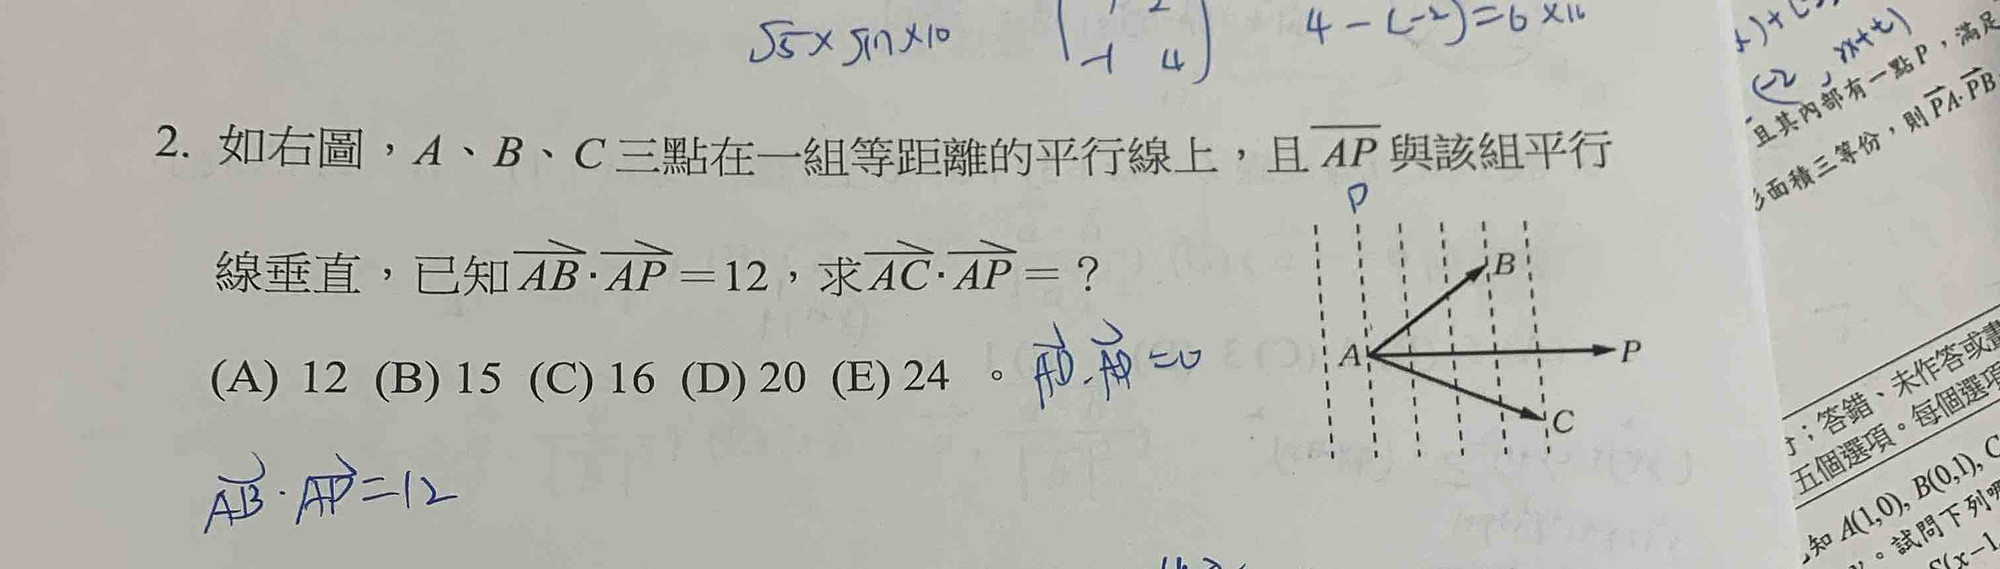 √5 × sin × 10
-1 4
4 - (-2) = 6 × 10
2. 如右圖，A、B、C 三點在一組等距離的平行線上，且 AP 與該組平行
P
線垂直，已知 AB · AP = 12，求 AC · AP = ？
(A) 12 (B) 15 (C) 16 (D) 20 (E) 24 。
AB · AP = 12
B
A
P
C
且其內部有一點 P，滿足
面積三等份，則 PA · PB
；答錯、未作答或
五個選項。每個選項
知 A(1,0), B(0,1), C
。試問下列
(x-1